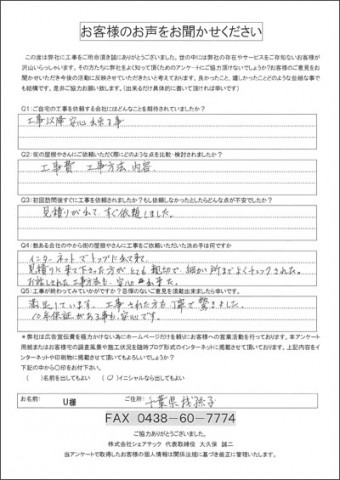 お客様のお声をお聞かせください
この度は弊社に工事をご用命頂き誠にありがとうございました。世の中には弊社の存在やサービスをご存知ないお客様が
沢山いらっしゃいます。その方たちに弊社をよく知って頂くためのアンケートにご協力頂けないでしょうか?お客様のご意見をお
聞かせいただき今後の活動に反映させていただきたいと考えております。良かったこと、嬉しかったことどのような些細な事で
も結構です。是非ご協力お願い致します。(出来るだけ具体的に書いて頂ければ幸いです)
Q1:ご自宅の工事を依頼する会社にはどんなことを期待されていましたか?
工事以降安心出来る事
Q2:街の屋根やさんにご依頼いただく際にどのような点を比較・検討されましたか?
工事費 工事方法、内容
Q3:初回訪問後すぐに工事を依頼されましたか?もし依頼しなかったとしたらどんな点が不安でしたか?
見積りが出て、すぐ依頼しました。
Q4:数ある会社の中から街の屋根やさんに工事をご依頼いただいた決め手は何ですか
インターネットでトップに出て来て、
見積りに来て下さった方がとても親切で、細かい所までよくチェックされた。
お話しされた工事方法も、安心出来た。
Q5:工事が終わってみていかがですか?忌憚のないご意見を頂戴出来ましたら幸いです。
満足しています。工事された方も丁寧で驚きました。
10年保証がある事も、安心です。
*弊社は広告宣伝費を極力かけない為にホームページだけを頼りにお客様への営業活動を行っております。本アンケート
用紙またはお客様宅の調査風景や施工状況を随時ブログ形式でインターネットに掲載させて頂いております。上記内容をイ
ンターネットや印刷物に掲載させて頂いてもよろしいでしょうか?
下記の中から〇印をお付下さい。
( )名前を出してもよい (〇)イニシャルなら出してもよい
お名前: U様 ご住所: 千葉県我孫子
FAX 0438-60-7774
ご協力ありがとうございました。
株式会社シェアテック 代表取締役 大久保 誠二
当アンケートで取得したお客様の個人情報は関係法規に基づき厳正に管理いたします。